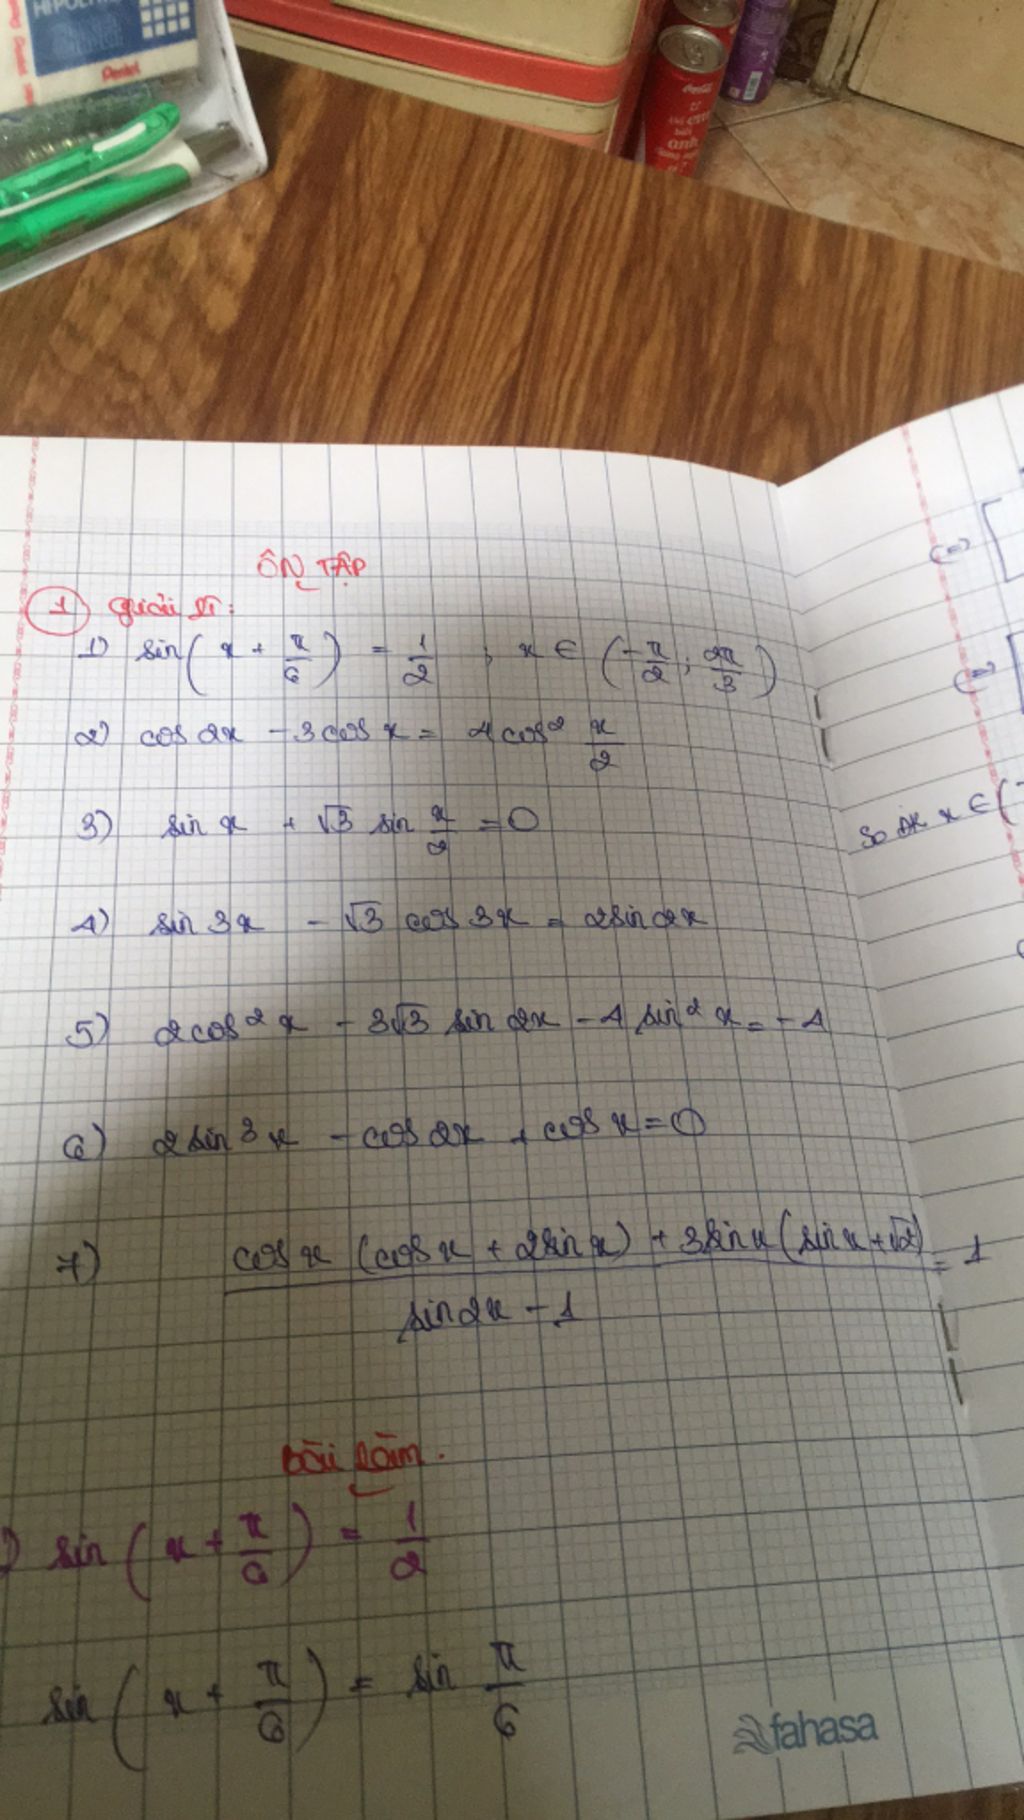 Pentel
Coca-Cola
anh
ÔN TẬP
1 Giải pt:
1) sin(x + π/6) = 1/2 ; x ∈ (-π/2; 2π/3)
2) cos 2x - 3cos x = 4cos² x/2
3) sin x + √3 sin x/2 = 0
4) sin 3x - √3 cos 3x = 2sin 2x
5) 2cos²x - 3√3 sin 2x - 4 sin²x = -4
6) 2sin³x - cos 2x + cos x = 0
7) (cos x (cos x + 2sin x) + 3sin x (sin x + √2))/(sin 2x - 1) = 1
Bài làm.
) sin(x + π/6) = 1/2
sin(x + π/6) = sin π/6
fahasa
(=)
(=)
So ĐK x ∈ (